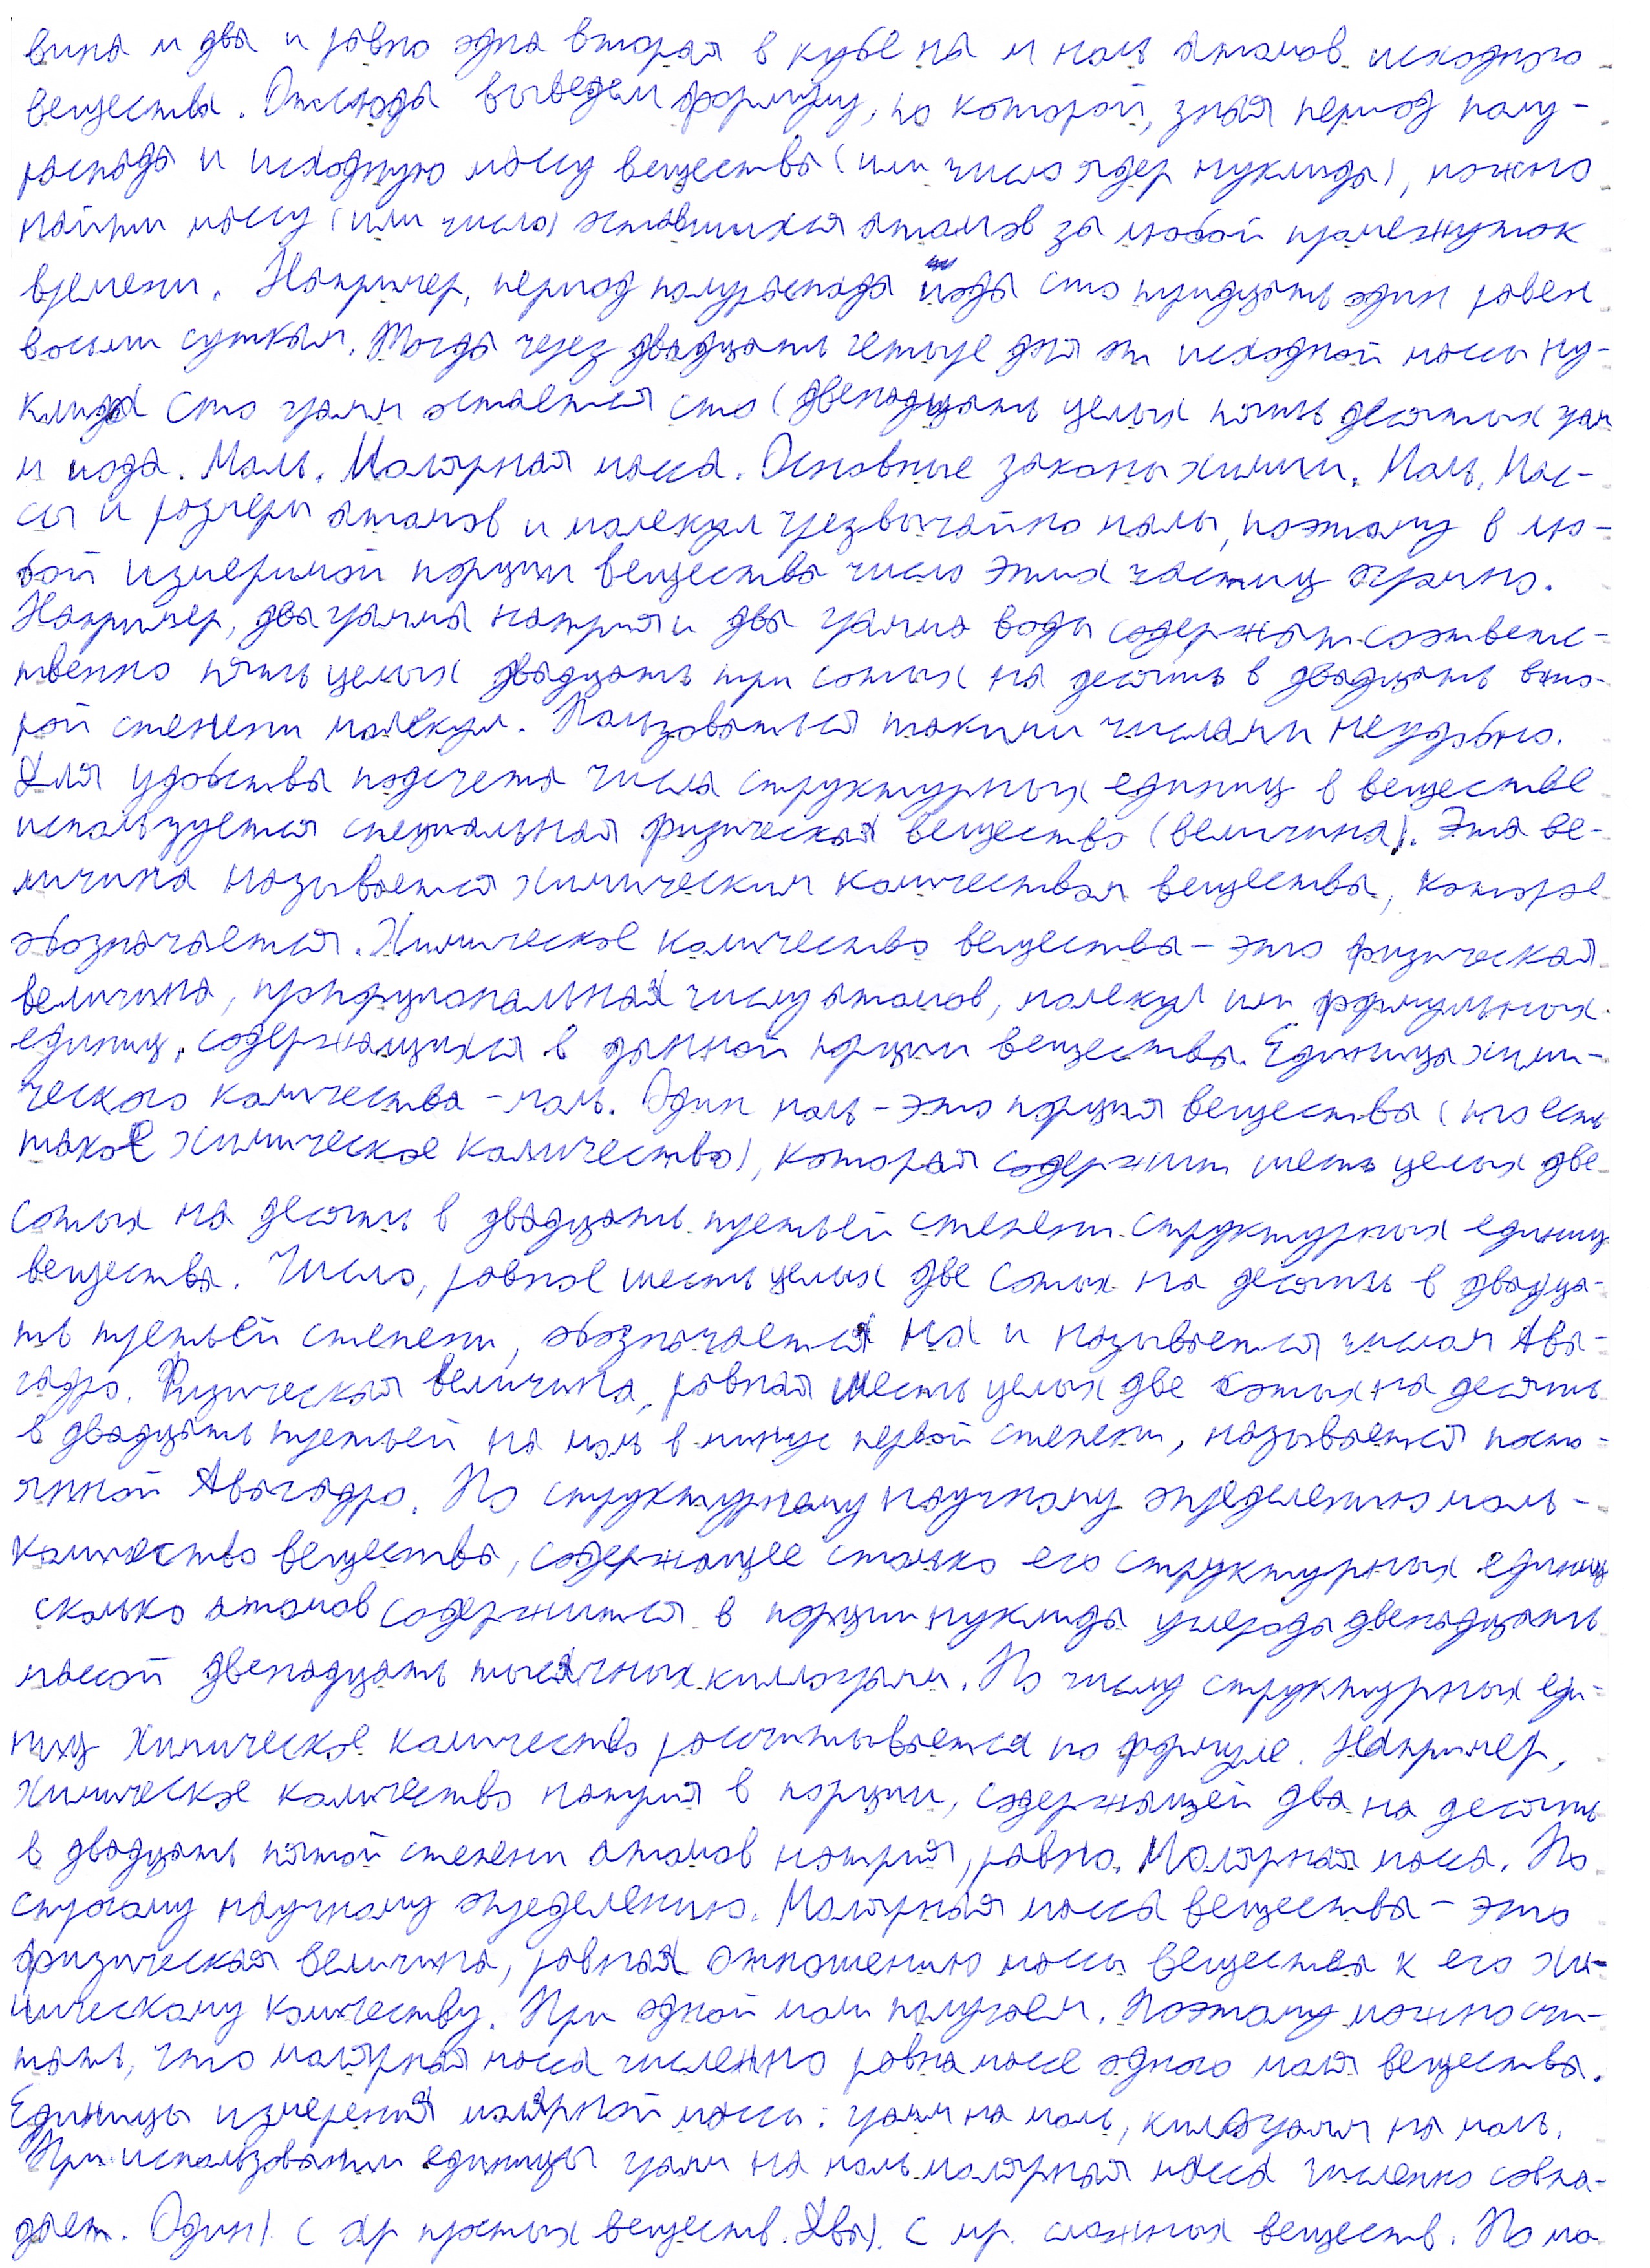 вина и два и равно одна вторая в кубе на и ноль атомов исходного
вещества. Отсюда выведем формулу, по которой, зная период полу-
распада и исходную массу вещества (или число ядер нуклида), можно
найти массу (или число) оставшихся атомов за любой промежуток
времени. Например, период полураспада иода сто тридцать один равен
восьми суткам. Тогда через двадцать четыре дня от исходной массы ну-
клида сто грамм остается сто (двенадцать целых пять десятых грам
м иода. Моль. Молярная масса. Основные законы химии. Моль. Мас-
сы и размеры атомов и молекул чрезвычайно малы, поэтому в лю-
бой измеримой порции вещества число этих частиц огромно.
Например, два грамма натрия и два грамма воды содержат соответс-
твенно пять целых двадцать три сотых на десять в двадцать вто-
рой степени молекул. Пользоваться такими числами неудобно.
Для удобства подсчета числа структурных единиц в веществе
используется специальная физическая вещество (величина). Эта ве-
личина называется химическим количеством вещества, которое
обозначается. Химическое количество вещества - это физическая
величина, пропорциональная числу атомов, молекул или формульных
единиц, содержащихся в данной порции вещества. Единица хими-
ческого количества - моль. Один моль - это порция вещества (то есть
такое химическое количество), которая содержит шесть целых две
сотых на десять в двадцать третьей степени структурных единиц
вещества. Число, равное шесть целых две сотых на десять в двадца-
ть третьей степени, обозначается на и называется числом Аво-
гадро. Физическая величина, равная шесть целых две сотых на десять
в двадцать третьей на моль в минус первой степени, называется посто-
янной Авогадро. По структурному научному определению моль -
количество вещества, содержащее столько его структурных единиц
сколько атомов содержится в порции нуклида углерода двенадцать
массой двенадцать тысячных килограмм. По числу структурных еди-
ниц химическое количество рассчитывается по формуле. Например,
химическое количество натрия в порции, содержащей два на десять
в двадцать пятой степени атомов натрия, равно. Молярная масса. По
строгому научному определению. Молярная масса вещества - это
физическая величина, равная отношению массы вещества к его хи-
мическому количеству. При одной моли получаем. Поэтому можно счи-
тать, что молярная масса численно равна массе одного моля вещества.
Единицы измерения молярной массы: грамм на моль, килограмм на моль.
При использовании единицы грамм на моль молярная масса численно совпа-
дает. Один) с ар простых веществ. Два) с мр. сложных веществ. По мо